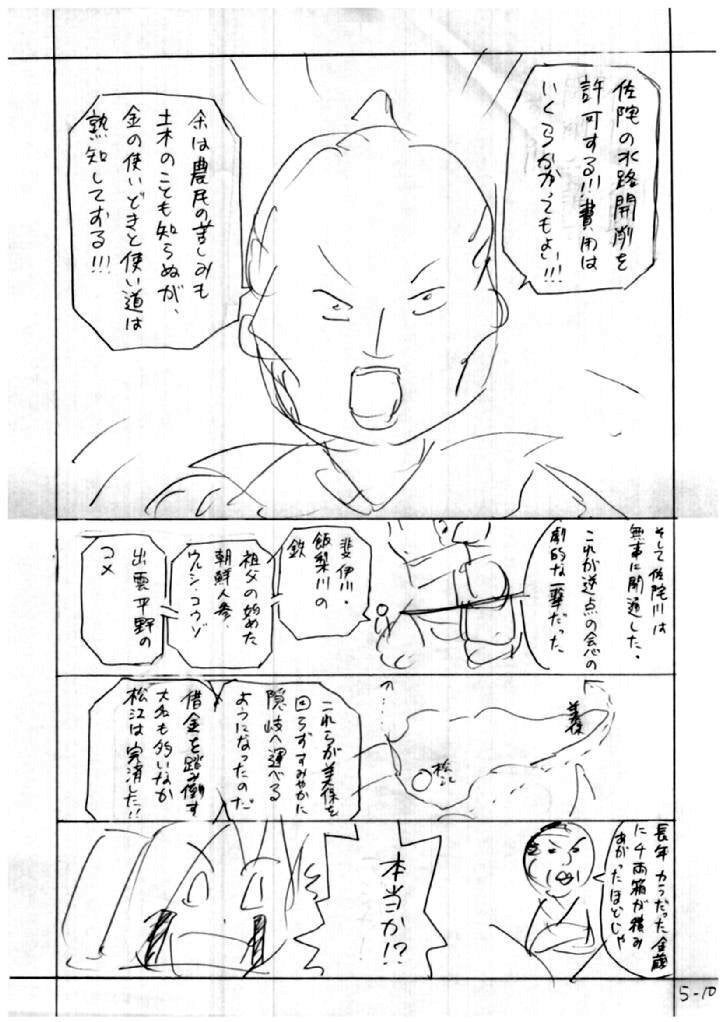 佐陀の水路開削を
許可する!!!費用は
いくらかかってもよい!!!
余は農民の苦しみも
土木のことも知らぬが、
金の使いどきと使い道は
熟知しておる!!!
そして佐陀川は
無事に開通した。
これが逆点の会心の
劇的な一撃だった
斐伊川・
飯梨川の
鉄
祖父の始めた
朝鮮人参、
ウルシ・コウゾ
出雲平野の
コメ
美保
松江
これらが美保を
回らずすみやかに
隠岐へ運べる
ようになったのだ
借金を踏み倒す
大名も多いなか
松江は完済した!!
長年カラだった金蔵
に千両箱が積み
あがったほどじゃ
本当か!?
5-10